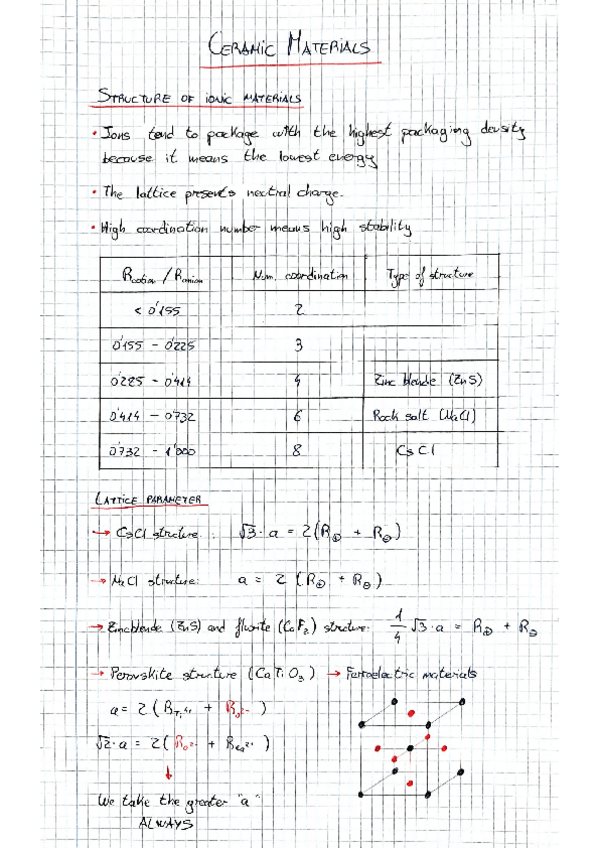 CERAMIC MATERIALS
STRUCTURE OF IONIC MATERIALS
• Ions tend to package with the highest packaging density
because it means the lowest energy
• The lattice presents neutral charge.
• High coordination number means high stability
Rcation / Ranion Num. coordination Type of structure
< 0'155 2
0'155 - 0'225 3
0'225 - 0'414 4 Zinc blende (ZnS)
0'414 - 0'732 6 Rock salt (NaCl)
0'732 - 1'000 8 CsCl
LATTICE PARAMETER
→ CsCl structure: √3·a = 2(R⊕ + R⊖)
→ NaCl structure: a = 2 (R⊕ + R⊖)
→ Zincblende (ZnS) and fluorite (CaF₂) structure: 1/4 √3·a = R⊕ + R⊖
→ Perovskite structure (CaTiO₃) → Ferroelectric materials
a = 2 (R Ti⁴⁺ + R O²⁻)
√2·a = 2(R O²⁻ + R Ca²⁺)
↓
We take the greater "a"
ALWAYS